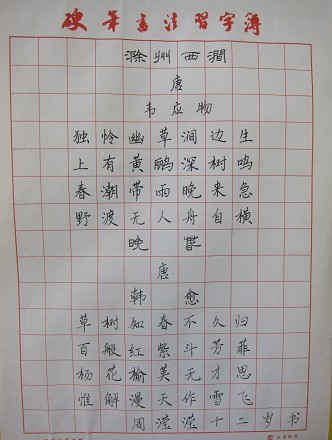 硬筆書法習字簿
滁州西澗
唐
韦应物
独怜幽草涧边生
上有黄鹂深树鸣
春潮带雨晚来急
野渡无人舟自横
晚春
唐
韩愈
草树知春不久归
百般红紫斗芳菲
杨花榆荚无才思
惟解漫天作雪飞
周滢滢十二岁书